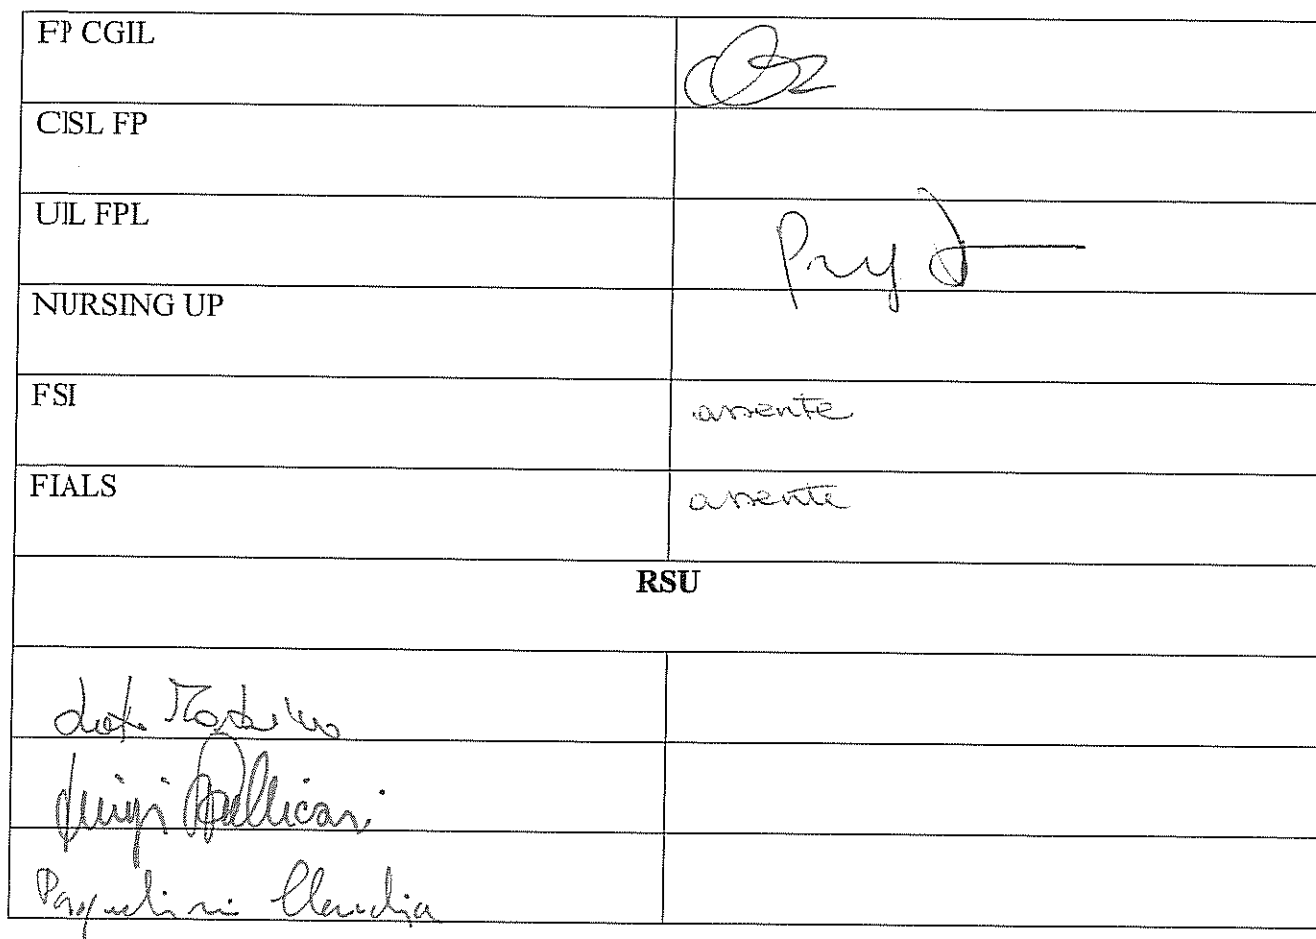 FP CGIL
CISL FP
UIL FPL
NURSING UP
FSI assente
FIALS assente
RSU
Luigi Pallicari
Pasqualini Claudia